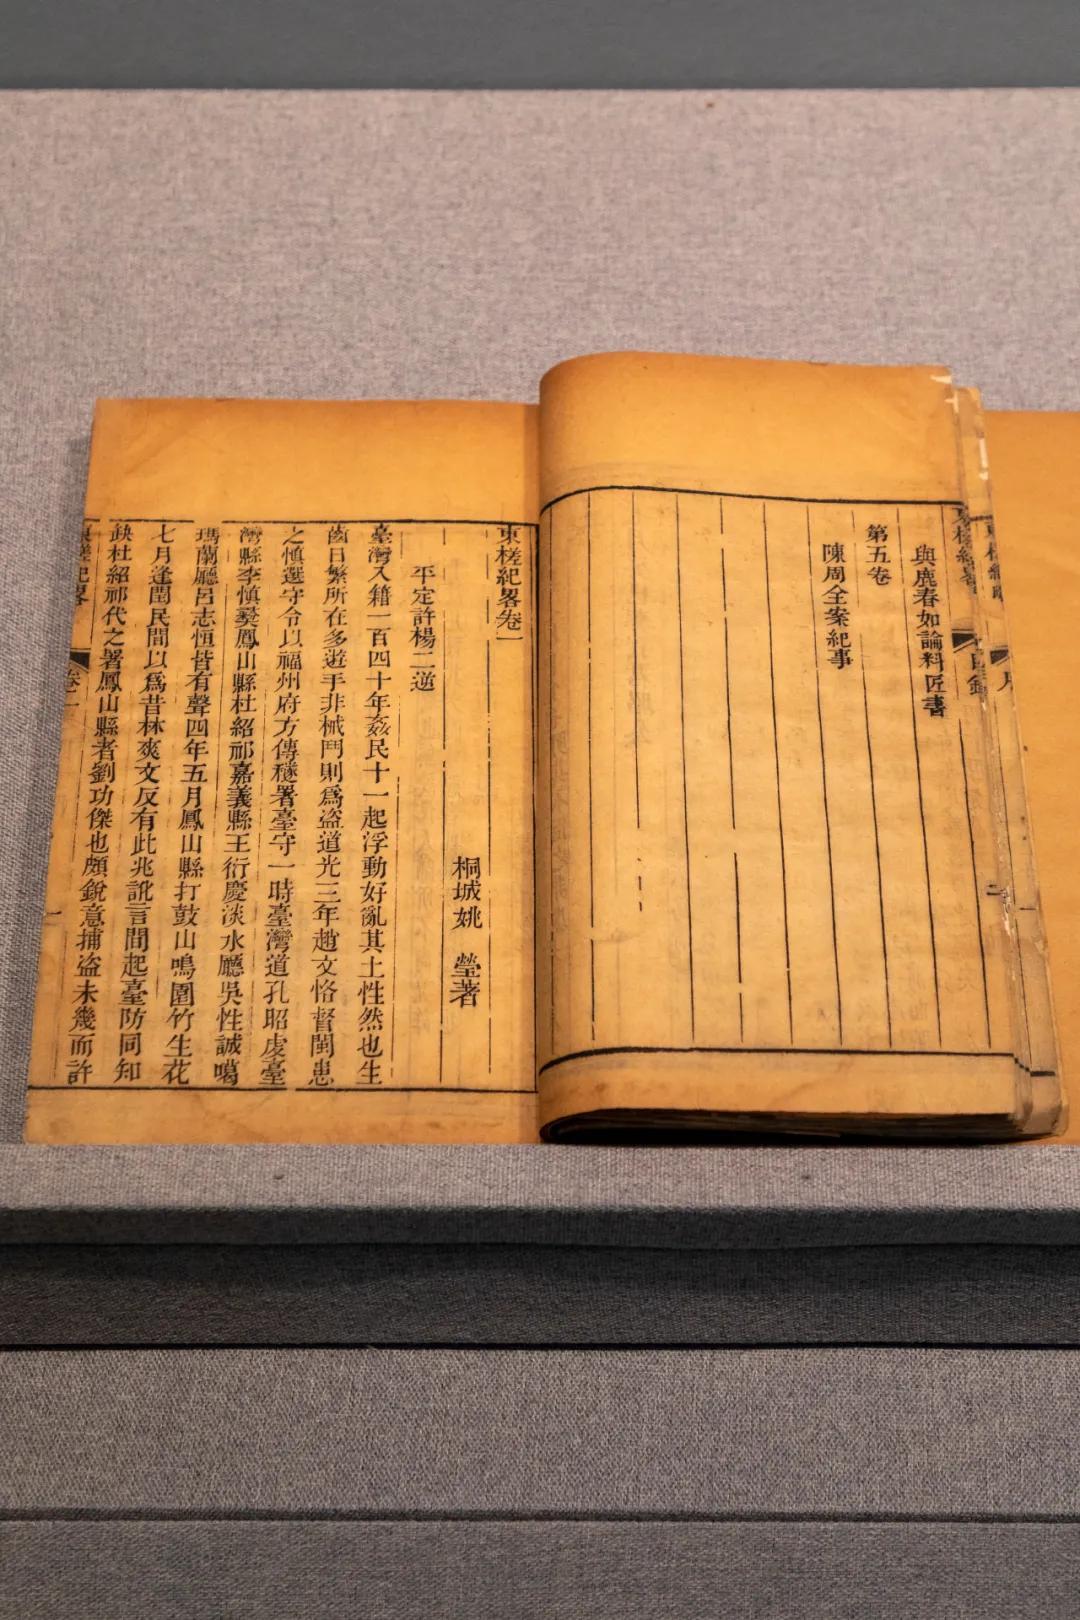 與鹿春如論料匠書
第五卷
陳周全案紀事
東槎紀畧卷一
桐城姚　瑩著
平定許楊二逆
臺灣入籍一百四十年姦民十一起浮動好亂其土性然也生
齒日繁所在多遊手非械鬥則爲盜道光三年趙文恪督閩患
之慎選守令以福州府方傳穟署臺守一時臺灣道孔昭虔臺
灣縣李慎彜鳳山縣杜紹祁嘉義縣王衍慶淡水廳吳性誠噶
瑪蘭廳呂志恒皆有聲四年五月鳳山縣打鼓山鳴園竹生花
七月逢閏民間以爲昔林爽文反有此兆訛言間起臺防同知
缺杜紹祁代之署鳳山縣者劉功傑也頗銳意捕盜未幾而許
東槎紀畧
卷一
一